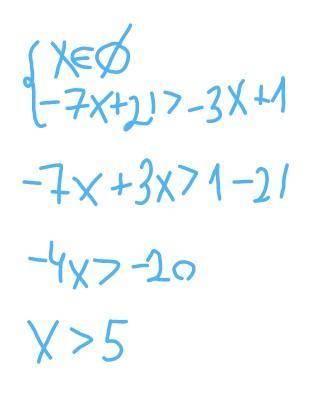 x∈∅
-7x+21>-3x+1
-7x+3x>1-21
-4x>-20
x>5